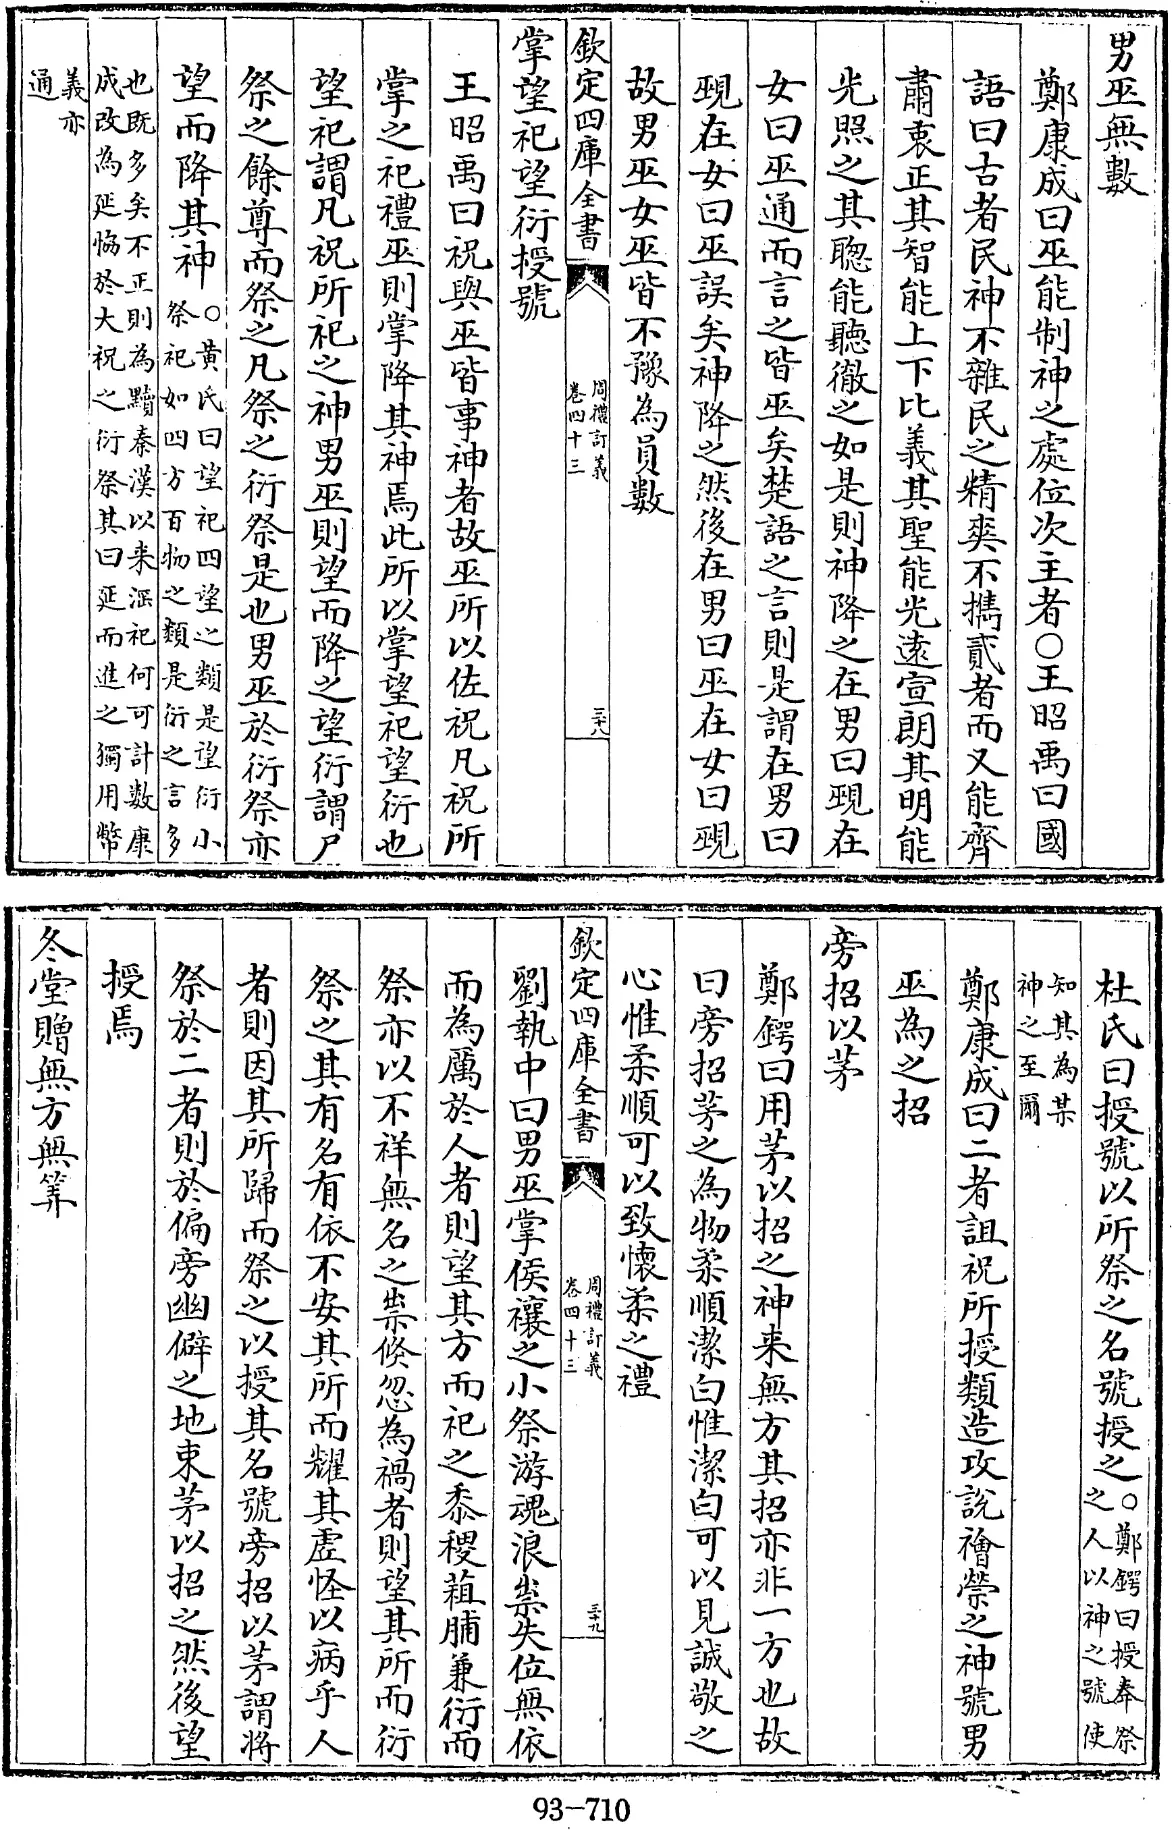 男巫無數
鄭康成曰巫能制神之處位次主者○王昭禹曰國
語曰古者民神不雜民之精爽不攜貳者而又能齊
肅衷正其智能上下比義其聖能光遠宣朗其明能
光照之其聰能聽徹之如是則神降之在男曰覡在
女曰巫通而言之皆巫矣楚語之言則是謂在男曰
覡在女曰巫誤矣神降之然後在男曰巫在女曰覡
故男巫女巫皆不豫為員數
欽定四庫全書
周禮訂義
卷四十三
三十八
掌望祀望衍授號
王昭禹曰祝與巫皆事神者故巫所以佐祝凡祝所
掌之祀禮巫則掌降其神焉此所以掌望祀望衍也
望祀謂凡祝所祀之神男巫則望而降之望衍謂尸
祭之餘尊而祭之凡祭之衍祭是也男巫於衍祭亦
望而降其神○黃氏曰望祀四望之類是望衍小
祭祀如四方百物之類是衍之言多
也既多矣不正則為黷秦漢以來淫祀何可計數康
成改為延惝於大祝之衍祭其曰延而進之獨用幣
義亦
通
杜氏曰授號以所祭之名號授之○鄭鍔曰授奉祭
之人以神之號使
知其為某
神之至爾
鄭康成曰二者詛祝所授類造攻說禬禜之神號男
巫為之招
旁招以茅
鄭鍔曰用茅以招之神来無方其招亦非一方也故
曰旁招茅之為物柔順潔白惟潔白可以見誠敬之
心惟柔順可以致懷柔之禮
欽定四庫全書
周禮訂義
卷四十三
三十九
劉執中曰男巫掌侯禳之小祭游魂浪祟失位無依
而為厲於人者則望其方而祀之黍稷葅脯兼衍而
祭亦以不祥無名之祟倏忽為禍者則望其所而衍
祭之其有名有依不安其所而耀其虛怪以病乎人
者則因其所歸而祭之以授其名號旁招以茅謂將
祭於二者則於偏旁幽僻之地束茅以招之然後望
授焉
冬堂贈無方無筭
93-710